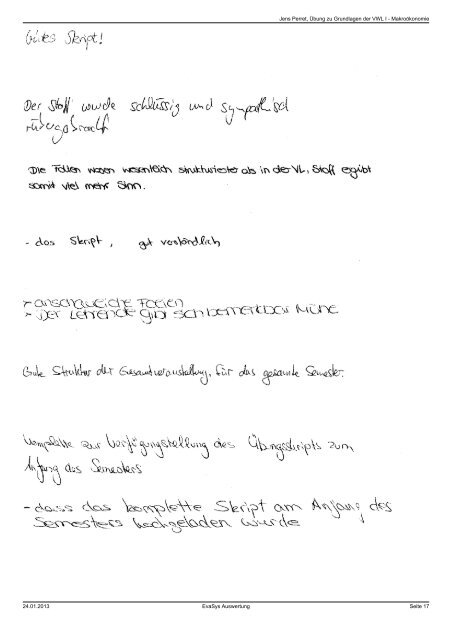 Jens Perret, Übung zu Grundlagen der VWL I - Makroökonomie
Gutes Skript!
Der Stoff wurde schlüssig und sympathisch
rübergebracht
Die Folien waren wesentlich strukturierter als in der VL, Stoff ergibt
somit viel mehr Sinn.
- das Skript, gut verständlich
- anschauliche Folien
- Der Lehrende gibt sich bemerkbar Mühe
Gute Struktur der Gesamtveranstaltung, für das gesamte Semester.
Komplette zur Verfügungstellung des Übungsskripts zum
Anfang des Semesters
- dass das komplette Skript am Anfang des
Semesters hochgeladen wurde
24.01.2013 EvaSys Auswertung Seite 17